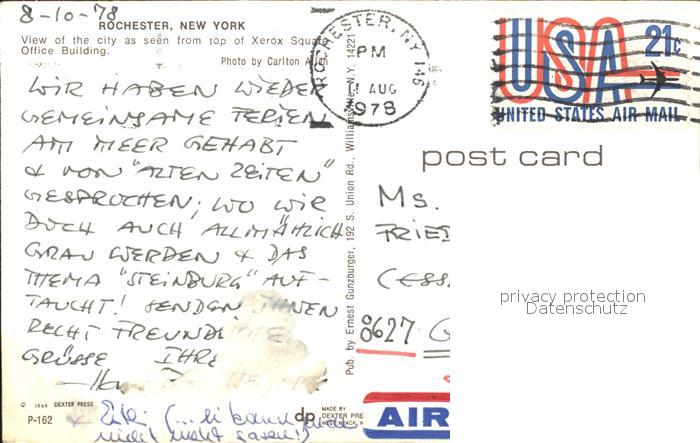 8-10-78
ROCHESTER, NEW YORK
View of the city as seen from top of Xerox Square
Office Building.
Photo by Carlton Allen
WIR HABEN WIEDER
GEMEINSAME FERIEN
AM MEER GEHABT
& VON "ALTEN ZEITEN"
GESPROCHEN; WO WIR
DOCH AUCH ALLMÄHLICH
GRAU WERDEN & DAS
THEMA "STEINBURG" AUF-
TAUCHT! SENDEN IHNEN
RECHT FREUNDLICHE
GRÜSSE IHRE
© 1969 DEXTER PRESS
P-162
Pub. by Ernest Gunzburger, 192 S. Union Rd., Williamsville, N.Y. 14221
dp
MADE BY
DEXTER PRE
WEST NYACK, N
ROCHESTER, NY 146
PM
11 AUG
1978
USA 21c
UNITED STATES AIR MAIL
post card
Ms.
FRIED
(CESS
8627 G
AIR
privacy protection
Datenschutz